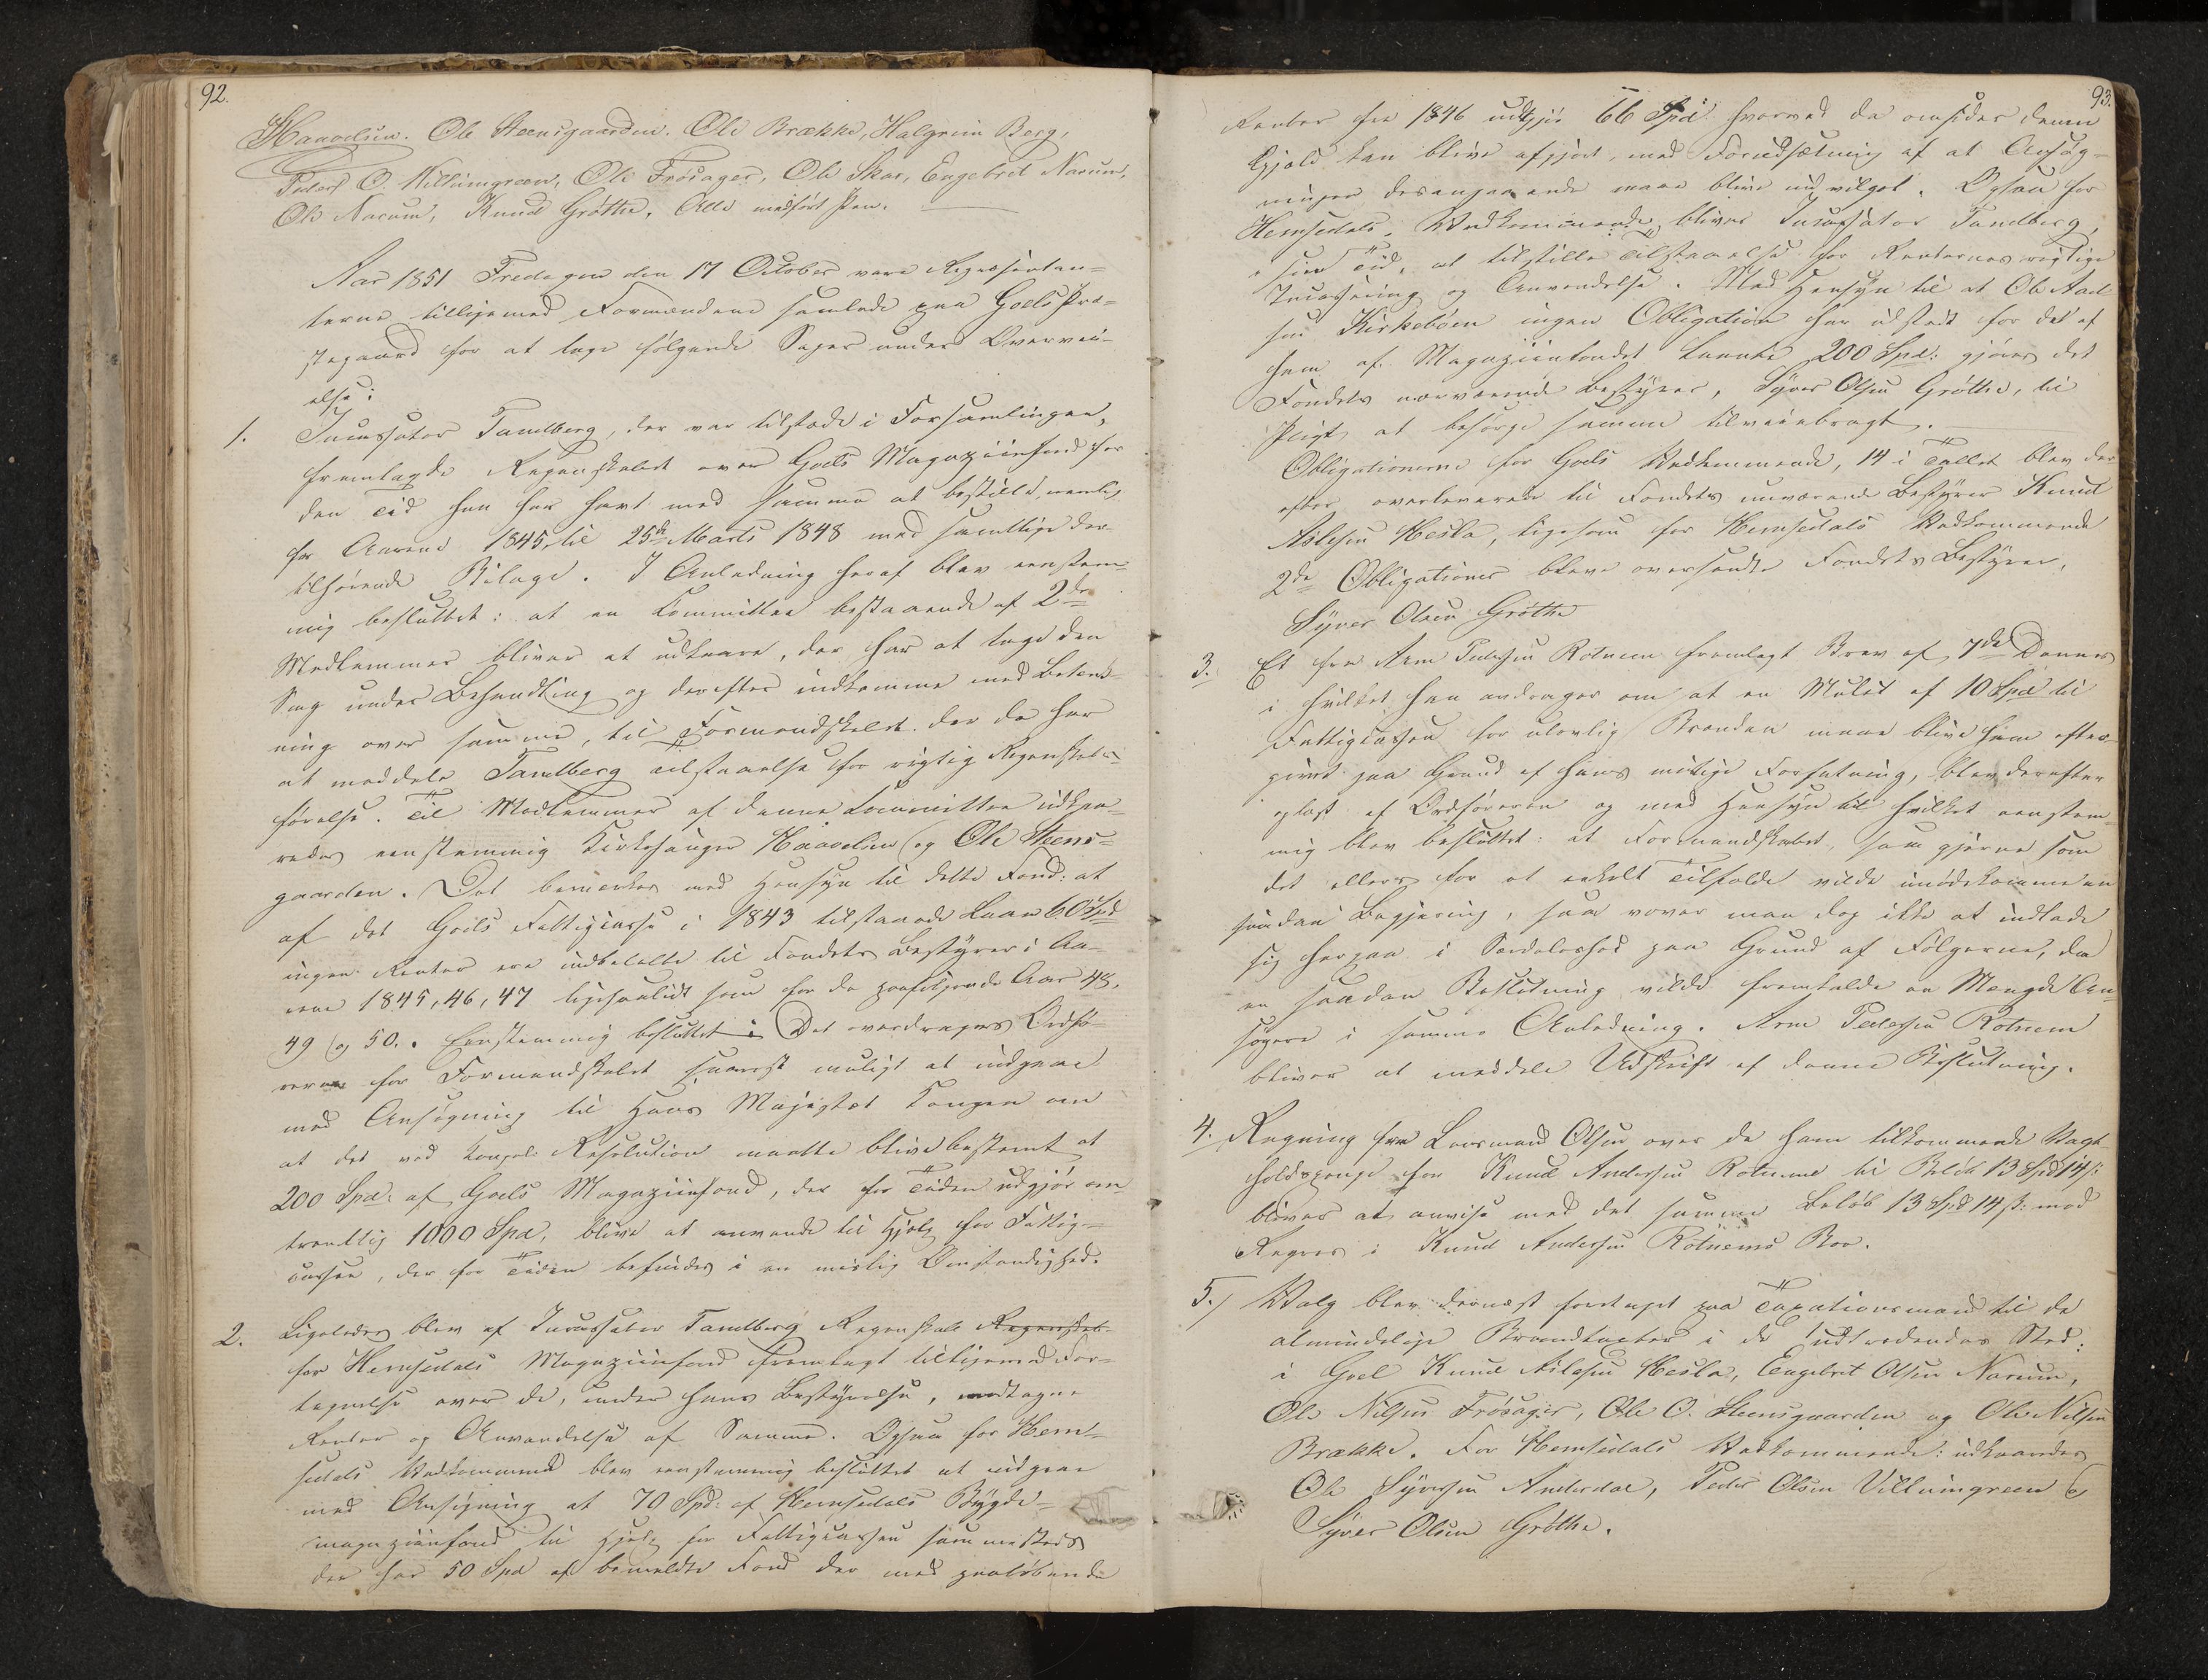 92.
Haavelsen. Ole Steensgaarden. Ole Brække, Halgrim Berg,
Peder O. Villumgreen, Ole Frøsager, Ole Skar, Engebret Narum,
Ole Narum, Knud Grøthe. Alle medført Pen.
Aar 1851 Fredagen den 17 October vare Repræsentan-
terne tilligemed Formændene samlede paa Goels Præ-
stegaard for at tage følgende Sager under Overvei-
else:
1. Incassator Tandberg, der var tilstæde i Forsamlingen,
fremlagde Regnskabet over Goels Magaziinfond for
den Tid han har havt med samme at bestille, nemlig
for Aarene 1845 til 25de Marts 1848 med samtlige der-
tilhørende Bilage. I Anledning heraf blev eenstem-
mig besluttet: at en Committee bestaaende af 2de
Medlemmer bliver at udkaare, der har at tage den
Sag under Behandling og derefter indkomme med Betænk-
ning over samme, til Formandskabet der da har
at meddele Tandberg Tilstaaelse for rigtig Regnskabs-
førelse. Til Medlemmer af denne Committee udkaa-
redes eenstemmig Kirkesanger Haavelsen og Ole Steens-
gaarden. Det bemærkes med Hensyn til dette Fond: at
af det Goels Fattigcasse i 1843 tilstaaede Laan 60 Spd
ingen Renter ere indbetalte til Fondets Bestyrer i Aa-
rene 1845, 46, 47 ligesaalidt som for de paafølgende Aar 48,
49 og 50. Eenstemmig besluttet: Det overdrages Ordfø-
reren for Formandskabet snarest muligt at indgaae
med Ansøgning til Hans Majestæt Kongen om
at det ved Kongel. Resolution maatte blive bestemt at
200 Spd: af Goels Magaziinfond, der for Tiden udgjør om-
trentlig 1000 Spd, blive at anvende til Hjelp for Fattig-
cassen, der for Tiden befindes i en mislig Omstændighed.
2. Ligeledes blev af Incassator Tandberg Regnskab Regnskab
for Hemsedals Magaziinfond fremlagt tilligemed For-
tegnelse over de, under hans Bestyrelse, modtagne
Renter og Anvendelse af Samme. Ogsaa for Hem-
sedals Vedkommende blev eenstemmig besluttet at indgaae
med Ansøgning at 70 Spd: af Hemsedals Bygde-
magaziinfond til Hjelp for Fattigcassen sammesteds
der har 50 Spd af bemeldte Fond der med paaløbende
93.
Renter fra 1846 udgjør 66 Spd hvorved da omsider denne
Gjæld kan blive afgjort, med Forudsætning af at Ansøg-
ningen desangaaende maae blive indvilget. Ogsaa for
Hemsedals Vedkommende bliver Incassator Tandberg,
i sin Tid, at tilstille Tilstaaelse for Renternes rigtige
Incassering og Anvendelse. Med Hensyn til at Ole Aad-
sen Kirkebøen ingen Obligation har udstedt for det af
ham af Magaziinfondet laante 200 Spd: gjøres det
Fondets nærværende Bestyrer, Syver Olsen Grøthe, til
Pligt at besørge samme tilveiebragt.
Obligationerne for Goels Vedkommende, 14 i Tallet blev der-
efter overleverede til Fondets nuværende Bestyrer Knud
Aslesen Hesla, ligesom for Hemsedals Vedkommende
2de Obligationer bleve oversendte Fondets Bestyrer,
Syver Olsen Grøthe
3. Et fra Arne Pedersen Rotnem fremlagt Brev af 7de Dennes
i hvilket han andrager om at en Mulct af 10 Spd til
Fattigcassen for ulovlig Brænden maae blive ham efter-
givet paa Grund af hans mislige Forfatning, blev derefter
oplæst af Ordføreren og med Hensyn til hvilket eenstem-
mig blev besluttet: at Formandskabet, saa gjerne som
det ellers for et enkelt Tilfælde vilde imødekomme en
saadan Begjæring, saa vover man dog ikke at indlade
sig herpaa i Særdeleshed paa Grund af Følgerne, da
en saadan Beslutning vilde fremkalde en Mængde An-
søgere i samme Anledning. Arne Pedersen Rotnem
bliver at meddele Udskrift af denne Beslutning.
4. Regning fra Lensmand Olsen over de ham tilkommende Vagt-
holdspenge for Knud Andersen Rotneme til Beløb 13 Spd 14 ß:
bliver at anvise med det samme Beløb 13 Spd 14 ß: mod
Regres i Knud Andersen Rotnems Boe.
5. Valg blev dernæst foretaget paa Taxationsmænd til de
almindelige Brandtaxter i de udtrædendes Sted:
i Goel Knud Aslesen Hesla, Engebret Olsen Narum,
Ole Nilsen Frøsager, Ole O. Steensgaarden og Ole Nilsen
Brække. For Hemsedals Vedkommende: udkaaredes
Ole Syversen Anderdal, Peder Olsen Villumgreen &
Syver Olsen Grøthe.